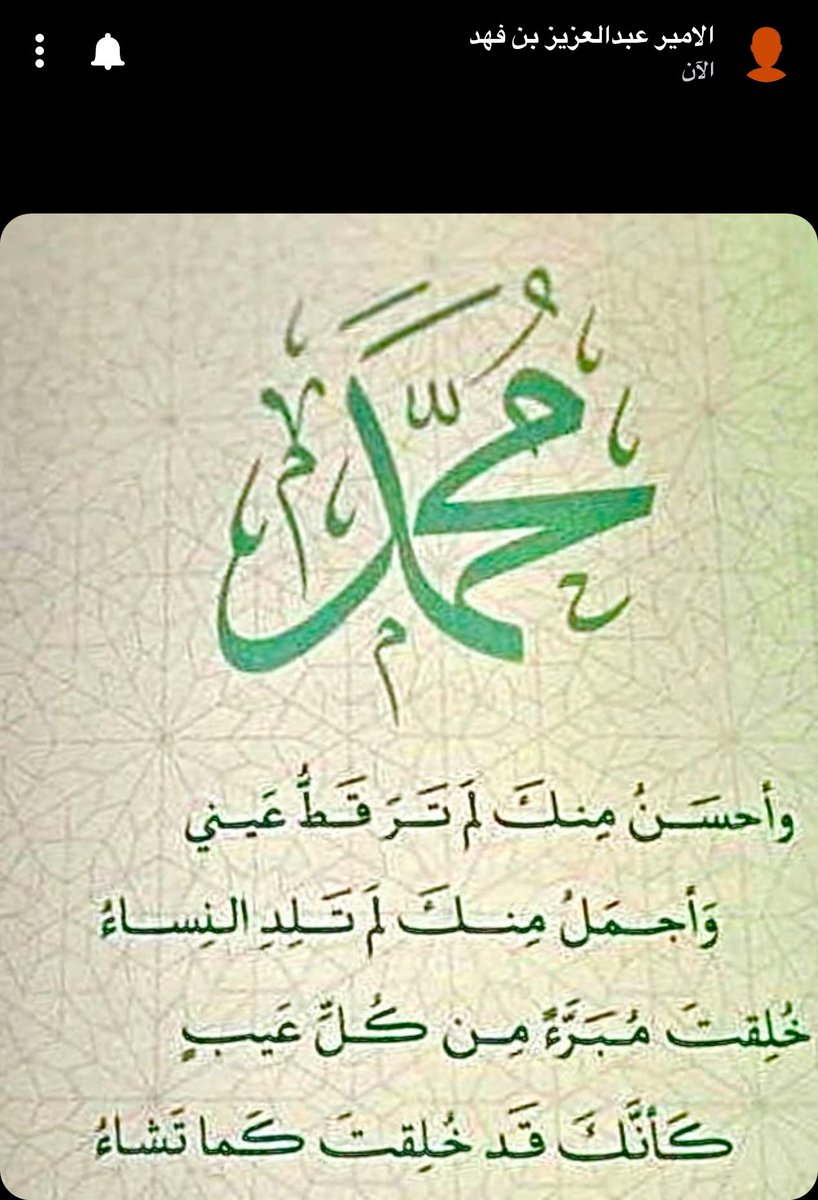 الامير عبدالعزيز بن فهد
الآن
محمد
وأحسَنُ مِنكَ لَم تَرَ قَطُّ عَيني
وَأجمَلُ مِنكَ لَم تَلِدِ النِساءُ
خُلِقتَ مُبَرَّءً مِن كُلِّ عَيبٍ
كَأنَّكَ قَد خُلِقتَ كَما تَشاءُ